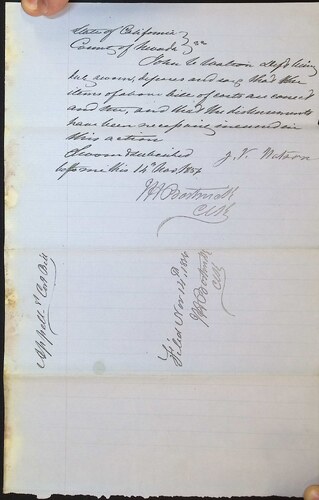 State of California
County of Nevada ss
John C. Watson dfs being
duly sworn, deposes and says that the
items of above bill of costs are correct
and true, and that the disbursements
have been necessarily incurred in
this action
Sworn & subscribed J. C. Watson
before me this 14th Nov 1856
Clk
Filed Nov 14th 1856
Clk
Appell. Cost Bill